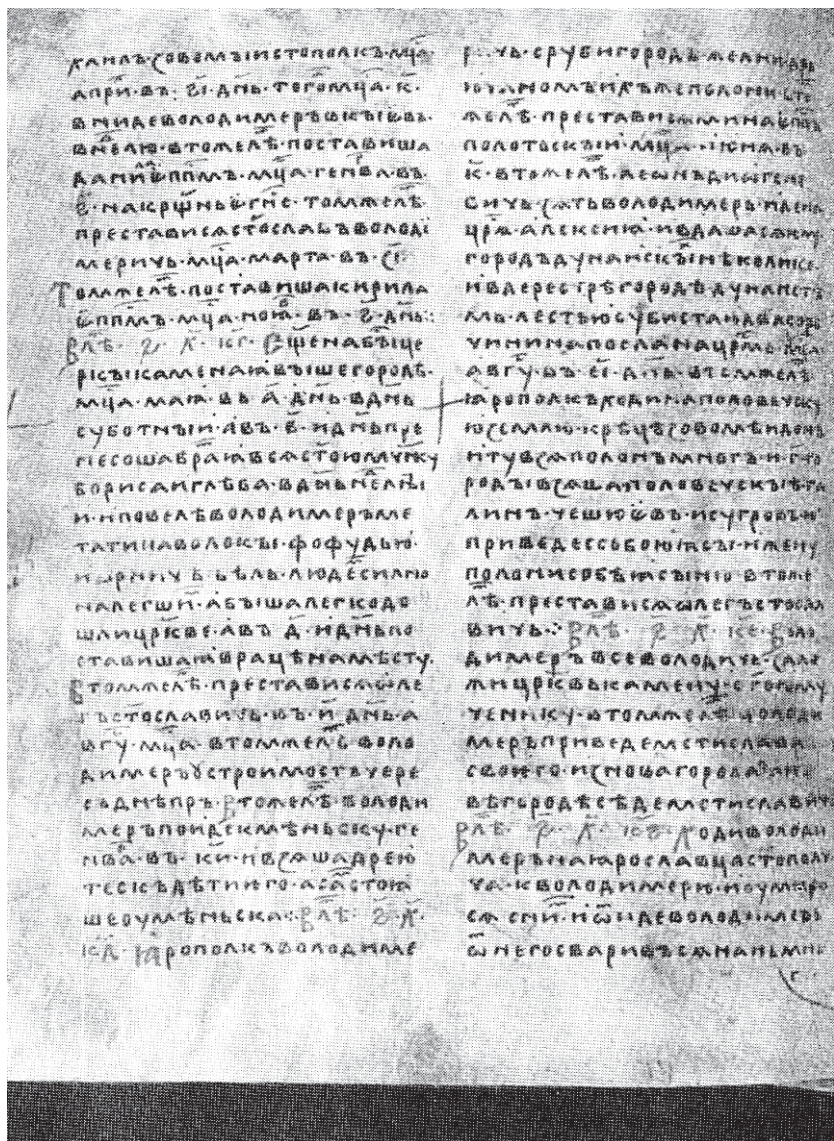 хаилъ зовомъıи с҃тополкъ· мц҃а
апри· въ· ѕ҃ı· дн҃ь· тогом̑ц҃а· к҃·
вниде володимеръ в къıѥвъ·
в нд҃лю· в томже лѣ̑· поставиша
данила еп҃пмь· мц҃а· генва· въ·
ѕ҃· на крщ҃нье г҃не· томже лѣ̑·
преставися ст҃ославъ володı
меричь· мц҃а· марта· въ· ѕ҃ı·
Томже лѣ̑· поставиша кирила
еп҃пмъ· мц҃а· нояб̑· въ· ѕ҃· дн҃ь·:
В лѣ̑· ҂ѕ҃· х҃· к҃г· Сщ҃ена бъı це
ркъı камена въıшегородѣ·
мц҃а· мая· въ· а҃· дн҃ь· в дн҃ь
суботнъıи· а въ· в҃· и дн҃ь пре
несоша браⷮя вся ст҃ою мч҃нку
бориса и глѣба· в дн҃ь нд҃лнъı
и· и повелѣ володимеръ ме
тати паволокъı· фофудью·
и орничѣ бѣль· людемъ силно
налегши· абъıша легко до
шли цр҃кве· а въ· д҃· и дн҃ь по
ставиша я в раце на мѣсту·
В томже лѣ̑· преставися ѡле
гъ ст҃ославичь· въ· и҃· дн҃ь· а
вгу· мц҃а· в томже лѣ̑· воло
димеръ устрои мостъ чере
съ днѣпръ· В томже лѣ̑· володи
меръ поиде к мѣньску· ге
нва̑· въ· к҃и· и взяша дрею
тескъ дѣти ѥго· а са стоя
ше оу мѣньска·: В лѣ̑· ҂ѕ҃· х҃·
к҃д· Ярополкъ володиме
ричь· сруби городъ желни дрю
чаномъ ихже полони· в то
же лѣ̑· преставися мина еп҃пъ
полотьскъıи· мц҃а· июня· въ
к҃· в томже лѣ̑· леѡнъ дивгене
вичь· зять володимерь· иде на
цр҃я алексия· и вдашася ѥму
городъ дунаискъıи нѣколико·
и в дерестрѣ городѣ дунаистѣ
мь· лестью убиста и два соро
чинина посланая цр҃мь· мц҃а
авгу· въ· е҃ı· дн҃ь· в томже лѣ̑
Ярополкъ ходи на половечску
ю землю· к рѣцѣ зовомѣи донъ
и ту взя полонъ многъ· и г҃ го
родъı взяша половечскъıѣ га
линъ· чешюевъ· и сугровъ· и
приведе с собою ясъı· и жену
полони собѣ ясъıню· в томже
лѣ̑· преставися ѡлегъ ст҃осла
вичь·: В лѣ̑· ҂ѕ҃· х҃· к҃е· Воло
димеръ всеволодичь· зало
жи цр҃квь камену· ст҃ому му
ченику· в томже лѣ̑ володи
меръ приведе мстислава
своѥго· из новагорода· а но
вѣгородѣ сѣде мстиславич
В лѣ̑· ҂ѕ҃· х҃· к҃ѕ· Ходи володи
меръ на ярославца ст҃ополч
ча· к володимерю· и оумиро
ся с ни̑· и ѿиде володимеръ
ѿ него сваривъся на нь мно
г